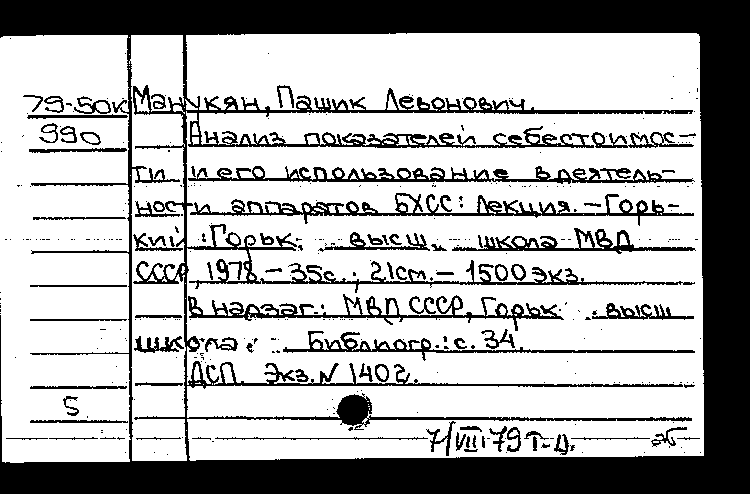 79-50к Манукян, Пашик Левонович.
990 Анализ показателей себестоимос-
ти и его использование в деятель-
ности аппаратов БХСС: Лекция. — Горь-
кий: Горьк. высш. школа МВД
СССР, 1978. — 35с.; 21см. — 1500 экз.
В надзаг.: МВД СССР, Горьк. высш
школа. Библиогр.: с. 34.
ДСП. Экз. N 1402.
5
7/VIII 79 Т-Д.